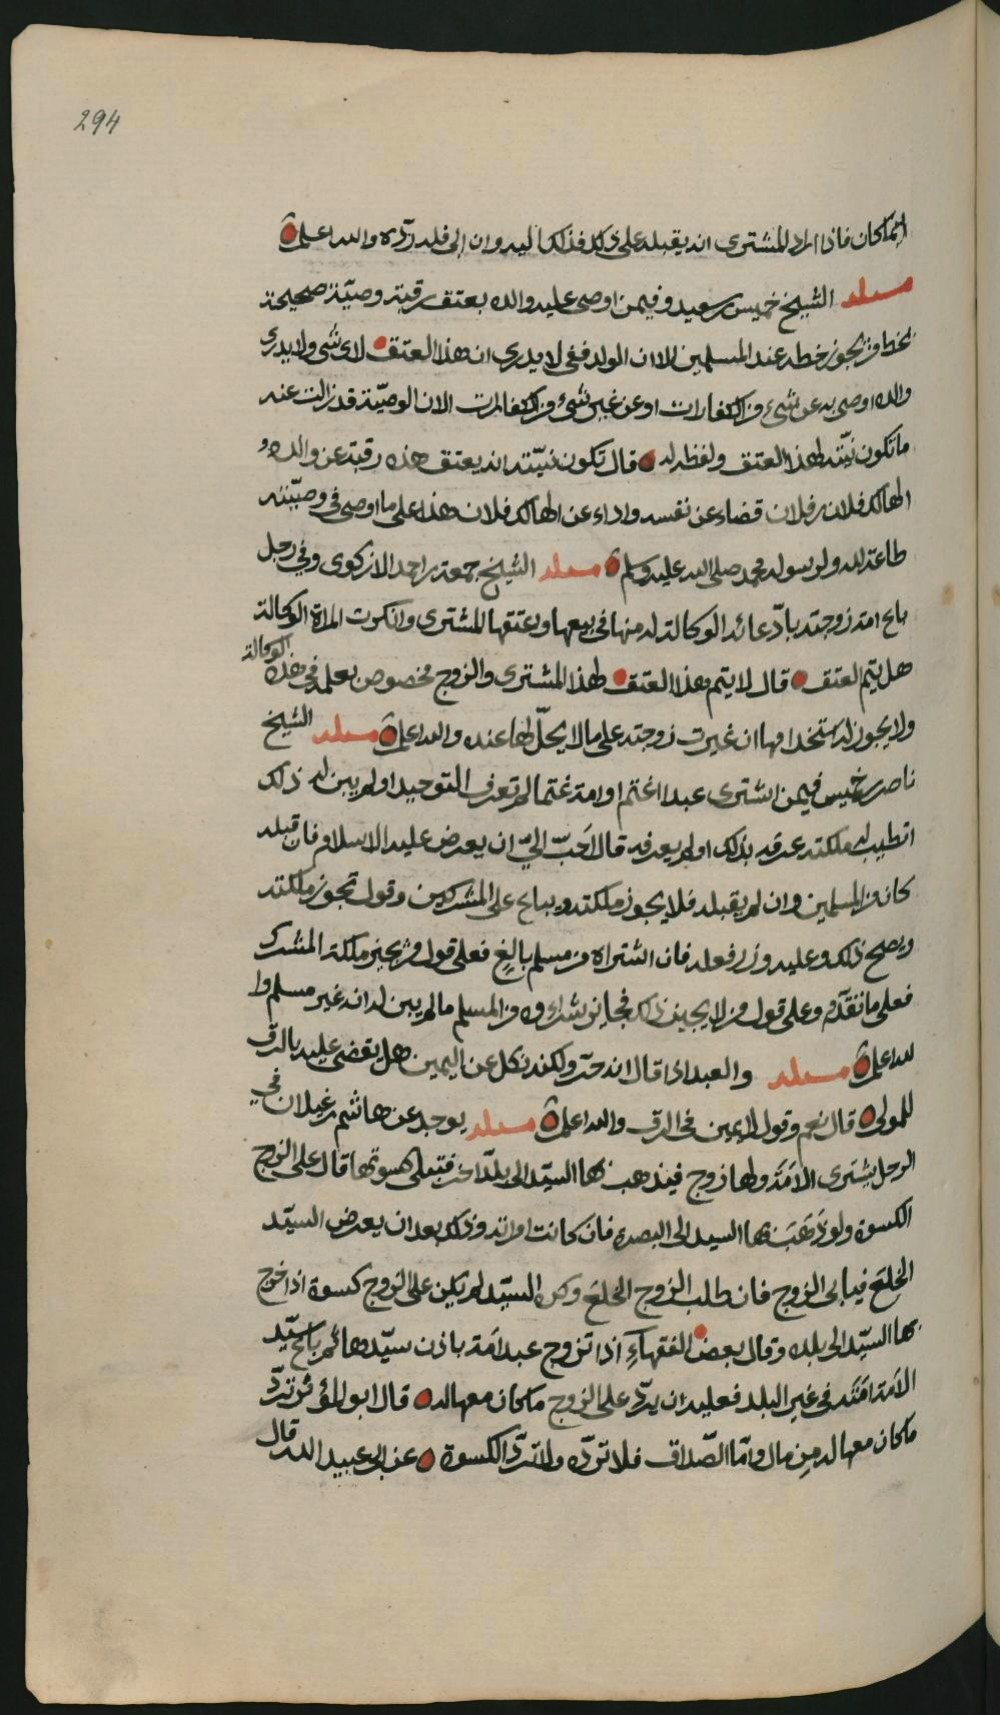 294
ايما كان فاذا اراد المشتري انه يقبله على ذلك فذلك اليه وان ابى فله ردّه والله اعلم
مسئلة الشيخ خميس بن سعيد وفيمن اوصى عليه والده بعتق رقبة وصيّة صحيحة
بخط من يجوز خطه عند المسلمين الا ان الولد فقى لا يدري ان هذا العتق لاى شى ولا يدري
والده اوصى به عن شىء من الكفارات او عن غير شىء من الكفارات الان الوصيّة قد زالت عنه
ما تكون نيّته لهذا العتق ولفظه له قال تكون نيّته انه يعتق هذه رقبة عن والده و
الهالك فلان بن فلان قضاء عن نفسه واداء عن الهالك فلان هذا على ما اوصى فى وصيّته
طاعة لله ولرسوله محمد صلى الله عليه وسلم مسئلة الشيخ جمعة بن احمد الازكوى وفي رجل
باع امة زوجته بادّعائه الوكالة له منها فى بيعها وعتقها المشتري وانكرت المراة الوكالة
هل يتم العتق قال لا يتم هذا العتق لهذا المشتري والزوج مخصوص بعلمه في هذه الوكالة
ولا يجوز له استخدامها ان غيرت زوجته على ما لا يحلّ لها عنده والله اعلم مسئلة الشيخ
ناصر بن خميس فيمن اشترى عبدا اغتم او امة غتما لم تعرف التوحيد او لم يبن له ذلك
اتطيب له ملكته عرفه بذلك او لم يعرفه قال اَحَبّ الىّ ان يعرض عليه الاسلام فان قبله
كان من المسلمين وان لم يقبله فلا يجوز ملكته ويباع على المشركين وقول تجوز ملكته
ويصح ذلك وعليه وزر فعله فان اشتراه من مسلم بالغٍ فعلى قول من يجيز ملكة المشرك
فعلى ما تقدّم وعلى قول من لا يجيز ذلك فجائز شراءه من المسلم ما لم يبين له انه غير مسلم وا
لله اعلم مسئلة والعبد اذا قال انه حرّ ولكنه نكل عن اليمين هل يقضى عليه بالرق
للمولى قال نعم وقول لا يمين فى الرق والله اعلم مسئلة يوجد عن هاشم بن غيلان في
الرجل يشترى الاَمَة ولها زوج فيذهب بها السيّد الى بلد اخر فتبلى كسوتها قال على الزوج
الكسوة ولو ذَهَبَ بها السيد الى البصره فان كانت امراته وذلك بعد ان يعرض السيّد
الخلعَ فيابى الزوج فان طلب الزوج الخلعَ وكره السيّد لم يكن على الزوج كسوة اذا خرج
بها السيّد الى بلده وقال بعض الفقهاءِ اذا تزوج عبد امَة باذن سيّدها ثم باع سيّد
الاَمة امَتَه فى غير البلد فعليه ان يردّ على الزوج ما كان معها له قال ابو المؤثر تردّ
ما كان معها له من مال وامّا الصّداق فلا تردّه ولا تردّ الكسوة عن ابى عبيد الله قال